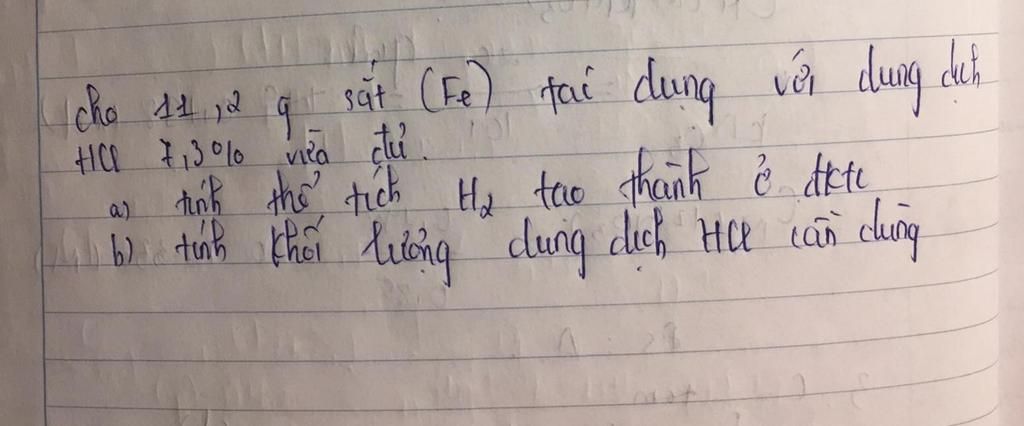 cho 11,2 g sắt (Fe) tác dụng với dung dịch
HCl 7,3% vừa đủ.
a) tính thể tích H2 tạo thành ở đktc
b) tính khối lượng dung dịch HCl cần dùng